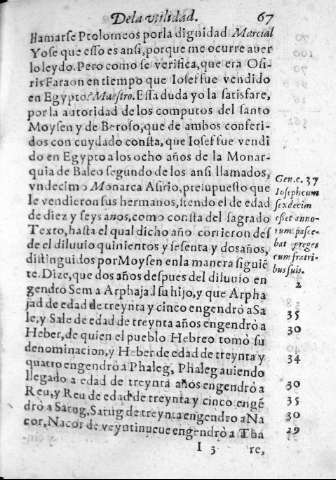 De la vtilidad. 67
llamarse Ptolomeos por la dignidad Marcial
Yo se que esso es ansi, porque me ocurre auer
lo leydo. Pero como se verifica, que era Osi-
ris Faraon en tiempo que Iosef fue vendido
en Egypto? Maestro. Esta duda yo la satisfare,
por la autoridad de los computos del santo
Moysen y de Beroso, que de ambos conferi-
dos con cuydado consta, que Iosef fue vendi
do en Egypto a los ocho años de la Monar-
quia de Baleo segundo de los ansi llamados,
vndecimo Monarca Asirio, presupuesto que
le vendieron sus hermanos, siendo el de edad
de diez y seys años, como consta del sagrado
Texto, hasta el qual dicho año corrieron des
de el diluuio quinientos y sesenta y dos años,
distinguidos por Moysen en la manera siguiē
te. Dize, que dos años despues del diluuio en
gendrò Sem a Arphaxad su hijo, y que Arpha
jad de edad de treynta y cinco engendrò a Sa
le, y Sale de edad de treynta años engendrò a
Heber, de quien el pueblo Hebreo tomò su
denominacion, y Heber de edad de treynta y
quatro engendrò a Phaleg, Phaleg auiendo
llegado a edad de treynta años engendrò a
Reu, y Reu de edad de treynta y cinco engē
drò a Sarug, Sarug de treynta engendrò a Na
cor, Nacor de veyntinueue engendrò a Tha
I 3 re,
Gen. c. 37
Iosephcum
sexdecim
esset anno-
rum pasce-
bat greges
cum fratri-
bus suis.
2
35
30
34
30
35
30
29